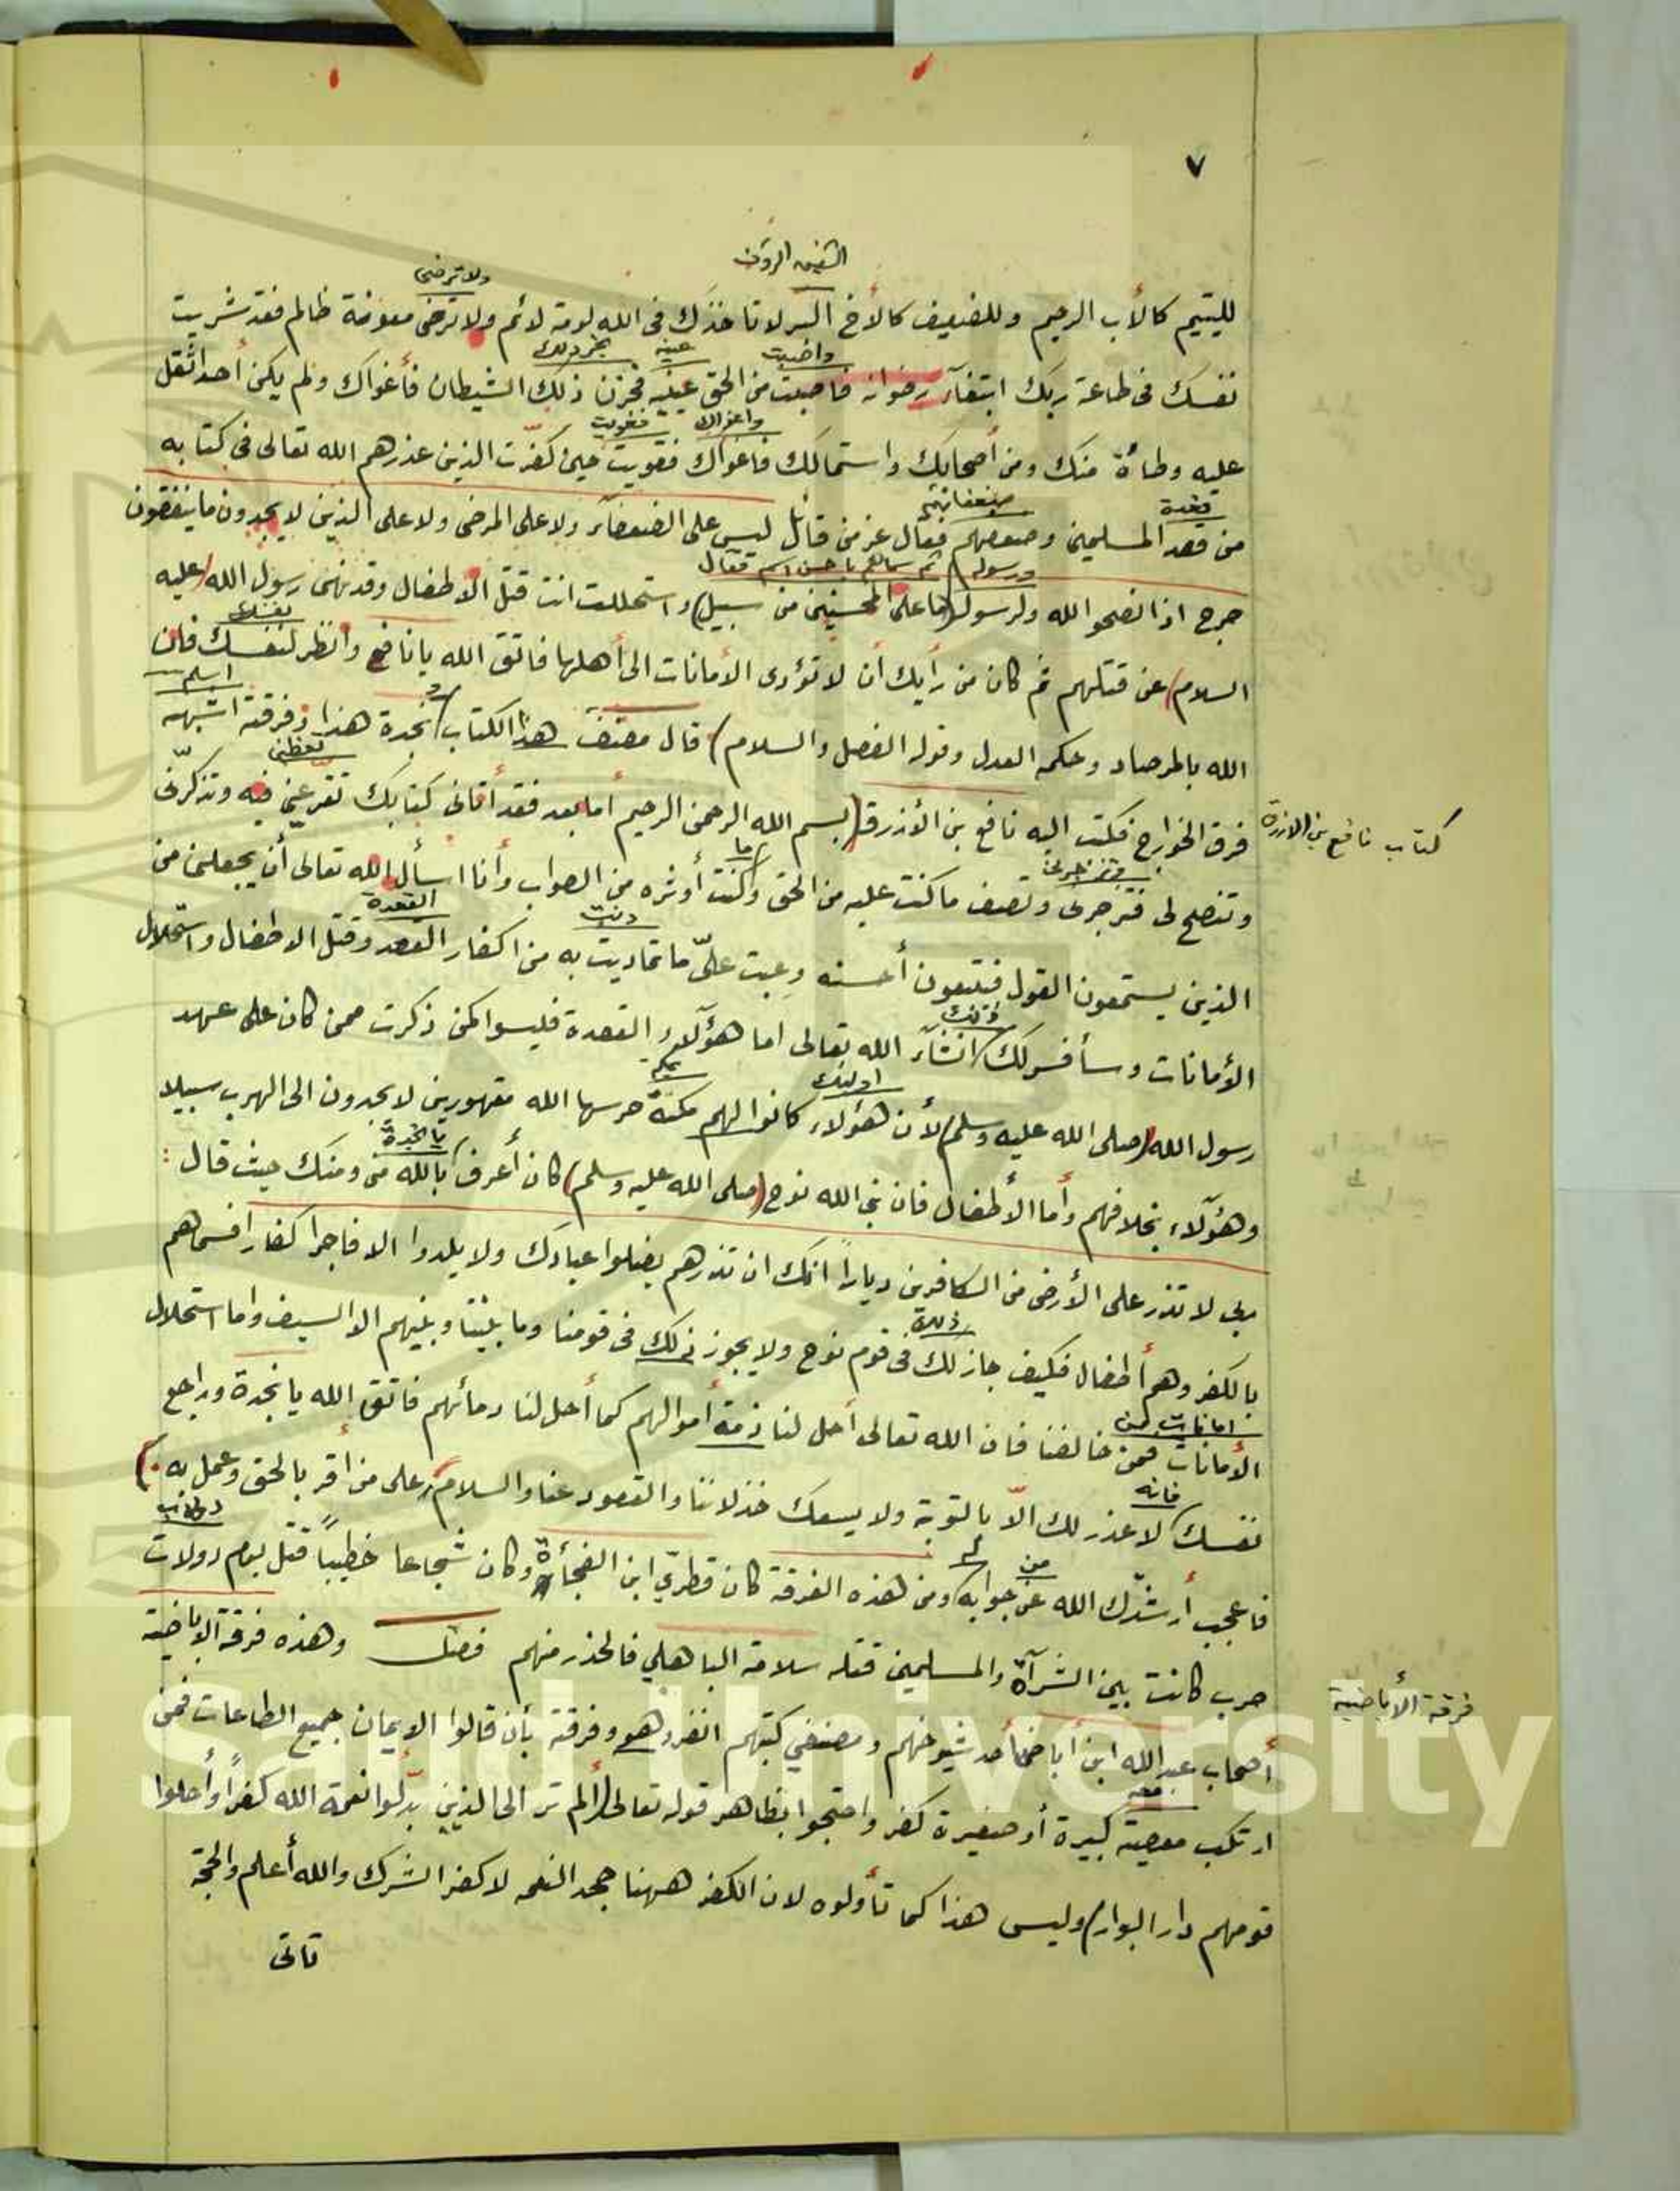 ٧
الشفيق الرؤف
ولا ترضى
لليتيم كالأب الرحيم وللضعيف كالأخ البر لا تأخذك في الله لومة لائم ولا ترضى معونة ظالم فقد شريت
واصبت عينه
نفسك في طاعة ربك ابتغآء رضوانه فاصبت من الحق عينه فحزن ذلك الشيطان فأغواك ولم يكن أحد اثقل
واغواك فغويت
عليه وطأة منك ومن أصحابك واستمالك فاغواك فغويت حين كفّرت الذين عذرهم الله تعالى في كتابه
قعدة
من قعد المسلمين وضعفهم فقال عز من قائل ليس على الضعفآء ولا على المرضى ولا على الذين لا يجدون ما ينفقون
ورسوله ثم سماهم باحسن اسم فقال
حرج اذا نصحوا الله ولرسوله (ما على المحسنين من سبيل) واستحللت انت قتل الاطفال وقد نهى رسول الله (عليه
السلام) عن قتلهم ثم كان من رأيك أن لا تؤدى الأمانات الى أهلها فاتق الله يا نافع وانظر لنفسك فان
اسلم
الله بالمرصاد وحكمه العدل وقوله الفصل والسلام) قال مصنف هذا الكتاب نجدة هذا وفرقته اشبه
كتاب نافع بن الازرق
فرق الخوارج فكتب اليه نافع بن الأزرق (بسم الله الرحمن الرحيم أما بعد فقد أتانى كتابك تقرعني فيه وتذكرنى
ما
وتنصح لى فتزجرنى وتصف ما كنت عليه من الحق وكنت أوثره من الصواب وأنا اسأل الله تعالى أن يجعلنى من
القعدة
الذين يستمعون القول فيتبعون أحسنه وعبت علىّ ما تماديت به من اكفار القعد وقتل الاطفال واستحلال
ذلك
الأمانات وسأفسر لك انشآء الله تعالى اما هؤلآء القعدة فليسوا كمن ذكرت ممن كان على عهد
اولئك
رسول الله (صلى الله عليه وسلم) لأن هؤلاء كانوا لهم مكة حرسها الله مقهورين لا يجدون الى الهرب سبيلا
يا نجدة
وهؤلآء بخلافهم وأما الأطفال فان نبى الله نوح (صلى الله عليه وسلم) كان أعرف بالله منى ومنك حيث قال :
ربى لا تذر على الأرض من الكافرين دياراً انك ان تذرهم يضلوا عبادك ولا يلدوا الا فاجرا كفارا فسماهم
ذلك
بالكفر وهم أطفال فكيف جاز لك في قوم نوح ولا يجوز ذلك فى قومنا وما بيننا وبينهم الا السيف واما استحلال
امانات من
الأمانات فمن خالفنا فان الله تعالى أحل لنا ذمة أموالهم كما أحل لنا دمائهم فاتق الله يا نجدة وراجع
فانه
نفسك لا عذر لك الّا بالتوبة ولا يسعك خذلاننا والقعود عنا والسلام على من أقر بالحق وعمل به)
من
فاعجب أرشدك الله عن جوابه ومن هذه الفرقة كان قطرى ابن الفجأة وكان شجاعا خطيباً قتل يوم دولات
حرب كانت بين الشرآة والمسلمين قتله سلامة الباهلي فالحذر منهم فصل وهذه فرقة الاباضية
فرقة الأباضية
أصحاب عبد الله ابن أباض أحد شيوخهم ومصنفي كتبهم انفرد هو وفرقته بأن قالوا الايمان جميع الطاعات فمن
ارتكب معصية كبيرة أو صغيرة كفر واحتجوا بظاهر قوله تعالى (ألم تر الى الذين بدّلوا نعمة الله كفراً وأحلوا
قومهم دار البوار) وليس هذا كما تأولوه لان الكفر ههنا جحد النعمه لا كفر الشرك والله أعلم والحجة
تاتى
Saud University